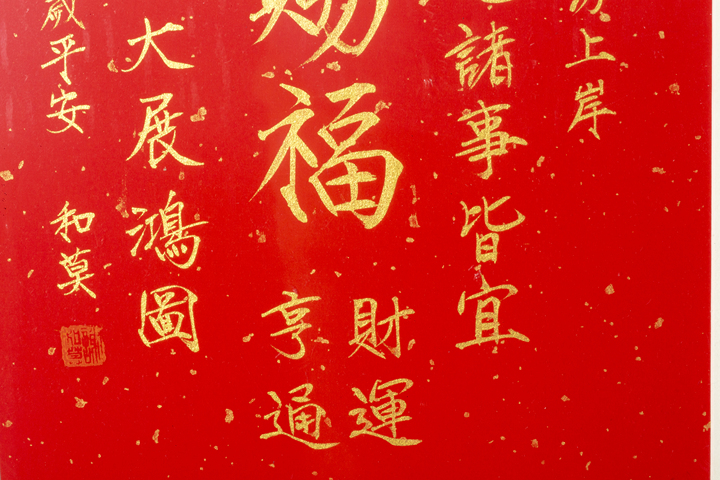 上岸
諸事皆宜
賜福
財運
亨通
大展鴻圖
歲平安
和莫